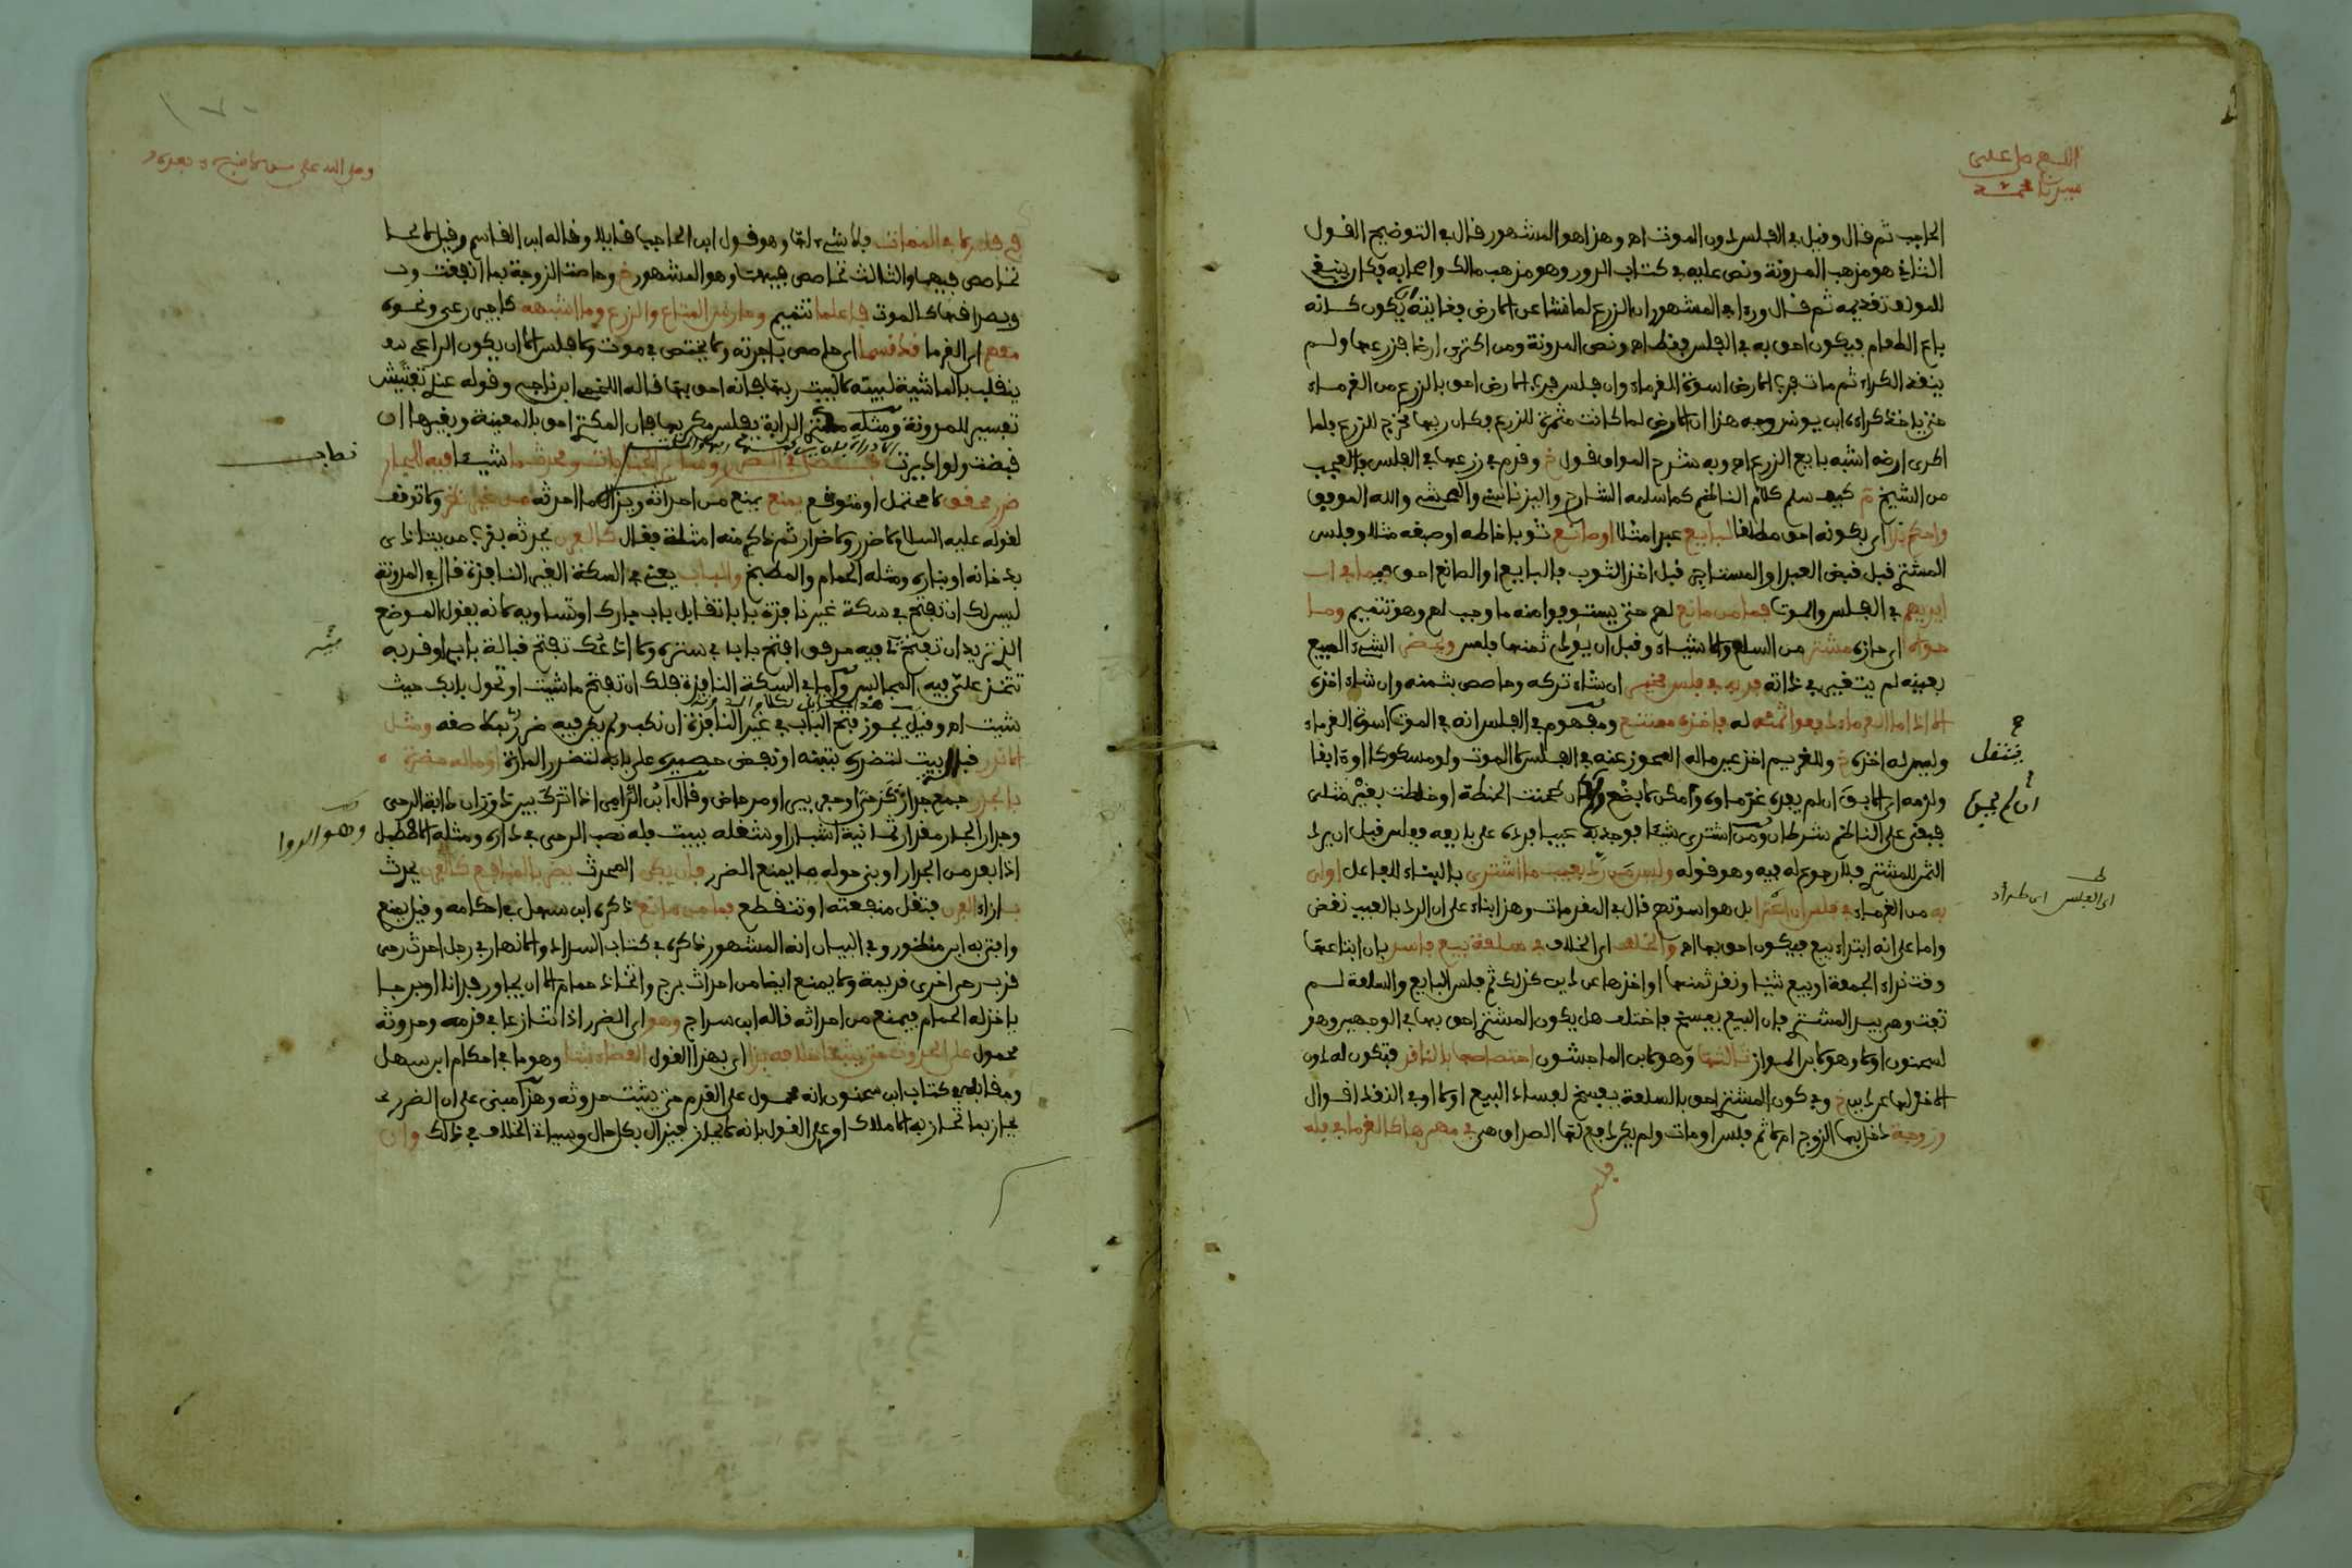 اللهم صل على
سيدنا محمد
الحاجب ثم قال وقيل في الفلس دون الموت اه وهذا هو المشهور قال في التوضيح القول
الثاني هو مذهب المدونة ونص عليه في كتاب الدور وهو مذهب مالك واصحابه فكان ينبغي
للمولف تقديمه ثم قال وراى في المشهور ان الزرع لما نشا عن الارض فغايته ان يكون كانه
باع الطعام فيكون احق به في الفلس فقط اه ونص المدونة ومن اكترى ارضا فزرعها ولم
ينقد الكراء ثم مات فرب الارض اسوة الغرماء وان فلس فرب الارض احق بالزرع من الغرماء
حتى ياخذ كراءه ابن يونس وجه هذا ان الارض لما كانت مثمرة للزرع فكان ربها مخرج للزرع فلما
اكرى ارضه اشبه بايع الزرع اه وبه شرح المواق قول خ وقدم في زرعها في الفلس والعجب
من الشيخ م كيف سلم كلام الناظم كما سلمه الشارح واليزناسني والله الموفق
واحكم بذا اي بكونه احق مطلقا لبايع عبدا مثلا او صانع ثوبا خاطه او صبغه مثلا وفلس
المشتري قبل قبض العبد او المستاجر قبل اخذ الثوب فالبايع او الصانع احق فيما في اب
ايديهم في الفلس والموت فما من مانع لهم حتى يستوفوا منه ما وجب لهم وهو تتميم وما
حواه اي حازه مشتر من السلع والاشياء وقبل ان يودي ثمنها فلس وبعض الشيء المبيع
بعينه لم يتغير في ذاته فربه في فلس مخير ان شاء تركه وحاصص بثمنه وان شاء اخذه
الا اذا ما الغرماء دفعوا ثمنه له فاخذه ممتنع ومفهوم في الفلس انه في الموت اسوة الغرماء
وليس له اخذه خ وللغريم اخذ عين ماله المحوز عنه في الفلس لا الموت ولو مسكوكا او ءابقا
ولزمه ان لم يجده ان لم يفده غرماوه وامكن لا بضع ان طحنت الحنطة او خلطت بغير مثلي
فبقي على الناظم شرطان ومن اشترى شيئا فوجد به عيبا فرده على بايعه وفلس قبل ان يرد
الثمن للمشتري فلا رجوع له فيه وهو قوله وليس من رد بعيب ما اشترى بالبناء للفاعل اولى
به من الغرماء في فلس ان اعترى بل هو اسوتهم قال في المقدمات وهذا بناء على ان الرد بالعيب نقض
واما على انه ابتداء بيع فيكون احق بها اه والخلف اي الخلاف في سلعة بيع فاسد بان ابتاعها
وقت نداء الجمعة او بيع ثنيا ونقد ثمنها او اخذها عن دين كذلك ثم فلس البايع والسلعة لم
تفت وهي بيد المشتري فان البيع يفسخ فاختلف هل يكون المشتري احق بها في الوجهين وهو
لسحنون او لا وهو لابن المواز ثالثها وهو لابن الماجشون اختصاصها بالنافذ فتكون له دون
الاخذ لها عن دين خ وفي كون المشتري احق بالسلعة بفسخ لفساد البيع او لا او في النقد اقوال
وزوجة دخل بها الزوج ام لا ثم فلس او مات ولم يكن دفع لها الصداق هي في مهرها كالغرما في فلس
ينتقل
وصلى الله على من لا نبي بعده
في فلس لا في الممات فلا شيء لها وهو قول ابن الحاجب قايلا وقاله ابن القاسم وقيل لا
تحاصص فيهما والثالث تحاصص فيهما وهو المشهور خ وحاصت الزوجة بما انفقت و
وبصداقها كالموت فاعلما تتميم وحارس المتاع والزرع وما اشبهه كاجير رعي ونحوه
معهم اي الغرما قد قسما اي حاصص باجرته ولا يختص في موت ولا فلس الا ان يكون الراعي
ينقلب بالماشية لبيته لا لبيت ربها فانه احق بها قاله اللخمي ابن ناجي وقوله عندي تفتيش
تفسير للمدونة ومثله مكتري الدابة يفلس مكريها فان المكتري احق بالمعينة وبغيرها ان
قبضت ولو اديرت فصل في الضرر وساير الجنايات ومحدث ما شيئا فيه للجار
ضرر محقق لا محتمل او متوقع يمنع يمنع من احداثه ويزال ما احدثه من غير نظر ولا توقف
لقوله عليه السلام لا ضرر ولا ضرار ثم ذكر منه امثلة فقال كالفرن يحدثه بقرب من يتاذى
بدخانه او بناره ومثله الحمام والمطبخ والباب يعني في السكة الغير النافذة قال في المدونة
ليس لك ان تفتح في سكة غير نافذة بابا تقابل باب جارك او تساويه لانه يقول الموضع
الذي تريد ان تفتح لي فيه مرفق افتح بابي في سترة ولا ادعك تفتح قبالة بابي او قربه
تتخذ علي فيه المجالس واما في السكة النافذة فلك ان تفتح ما شيت او تحول بابك حيث
شيت اه وقيل يجوز فتح الباب في غير النافذة ان نكب ولم يكن فيه ضرر كما صفه ومثل
الاندر قبل بيت لتضرره بتبنه او نفض حصيره على بابه لتضرر المارة او ما له مضرة
بالجدار جمع جدار كرحى وحفر بير او مرحاض وقال ابن الرامي اذا ترك بين دوران دابة الرحى
وجدار الجار مقدار ثمانية اشبار او شغله ببيت فله نصب الرحى في داره ومثله الاصطبل وهو الروا
اذا بعد من الجدار او بنى حوله ما يمنع الضرر فان يكن المحدث يضر بالمنافع كالفرن يحدث
بازاء الفرن فتقل منفعته او تنقطع فما من مانع ذكره ابن سهل في احكامه وقيل يمنع
وافتى به ابن منظور وفي البيان انه المشهور ذكره في كتاب السداد والانهار في رجل احدث رحى
قرب رحى اخرى قديمة ولا يمنع ايضا من احداث برج واتخاذ حمام الا ان يجاور فدانا او برجا
ياخذ له الحمام فيمنع من احداثه قاله ابن سراج وهو اي الضرر اذا تنازعا في قدمه وحدوثه
محمول على الحدوث حتى يثبتا خلافه بذا اي بهذا القول القضاء ثبتا وهو ما في احكام ابن سهل
ومقابله في كتاب ابن سحنون انه محمول على القدم حتى يثبت حدوثه وهذا مبني على ان الضرر
يحاز بما تحاز به الاملاك او على القول بانه لا يحاز فيزال بكل حال وسياتي الخلاف في ذلك وان